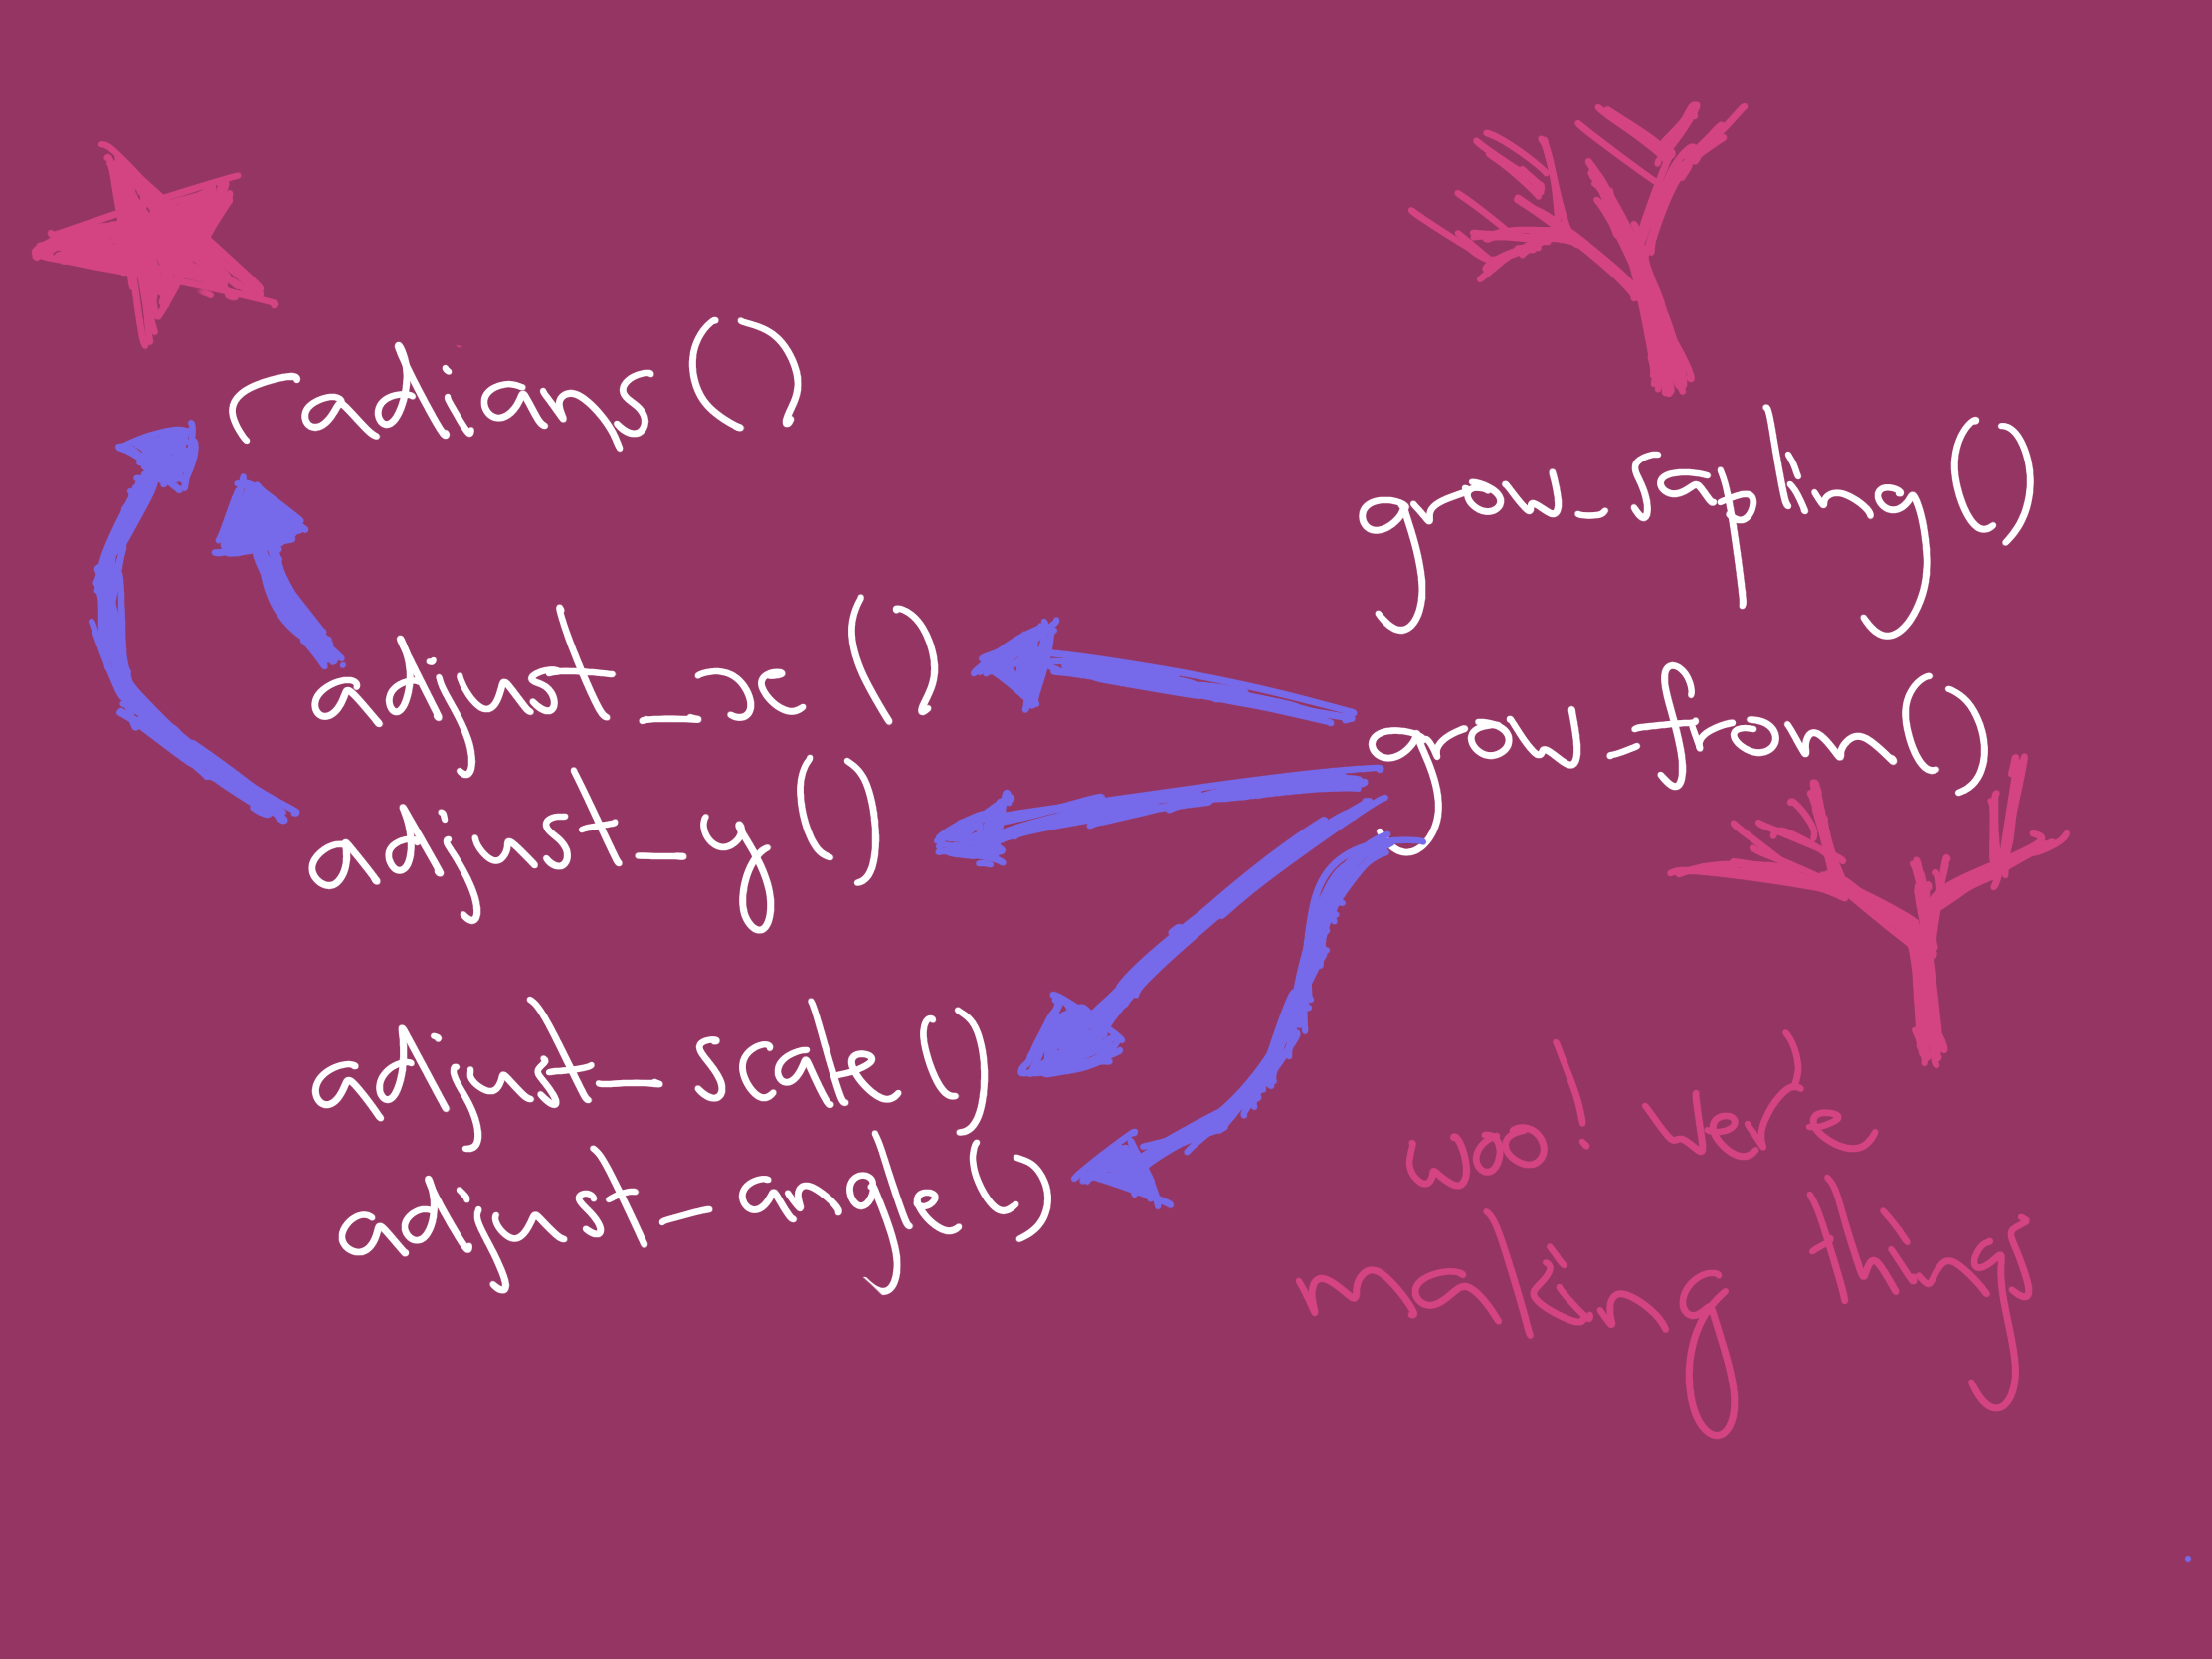 radians()
adjust_x()
adjust_y()
adjust_scale()
adjust_angle()
grow_sapling()
grow_from()
woo! we're
making things